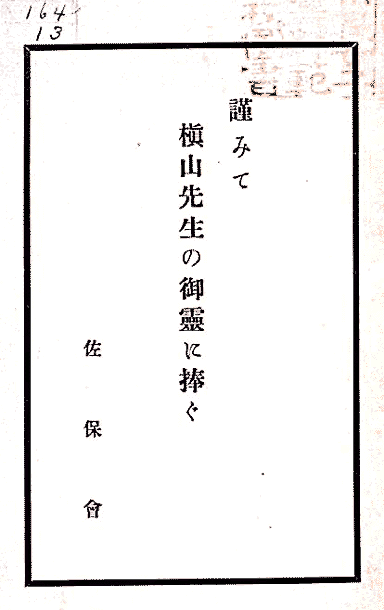 164
13
謹みて
槇山先生の御靈に捧ぐ
佐保會